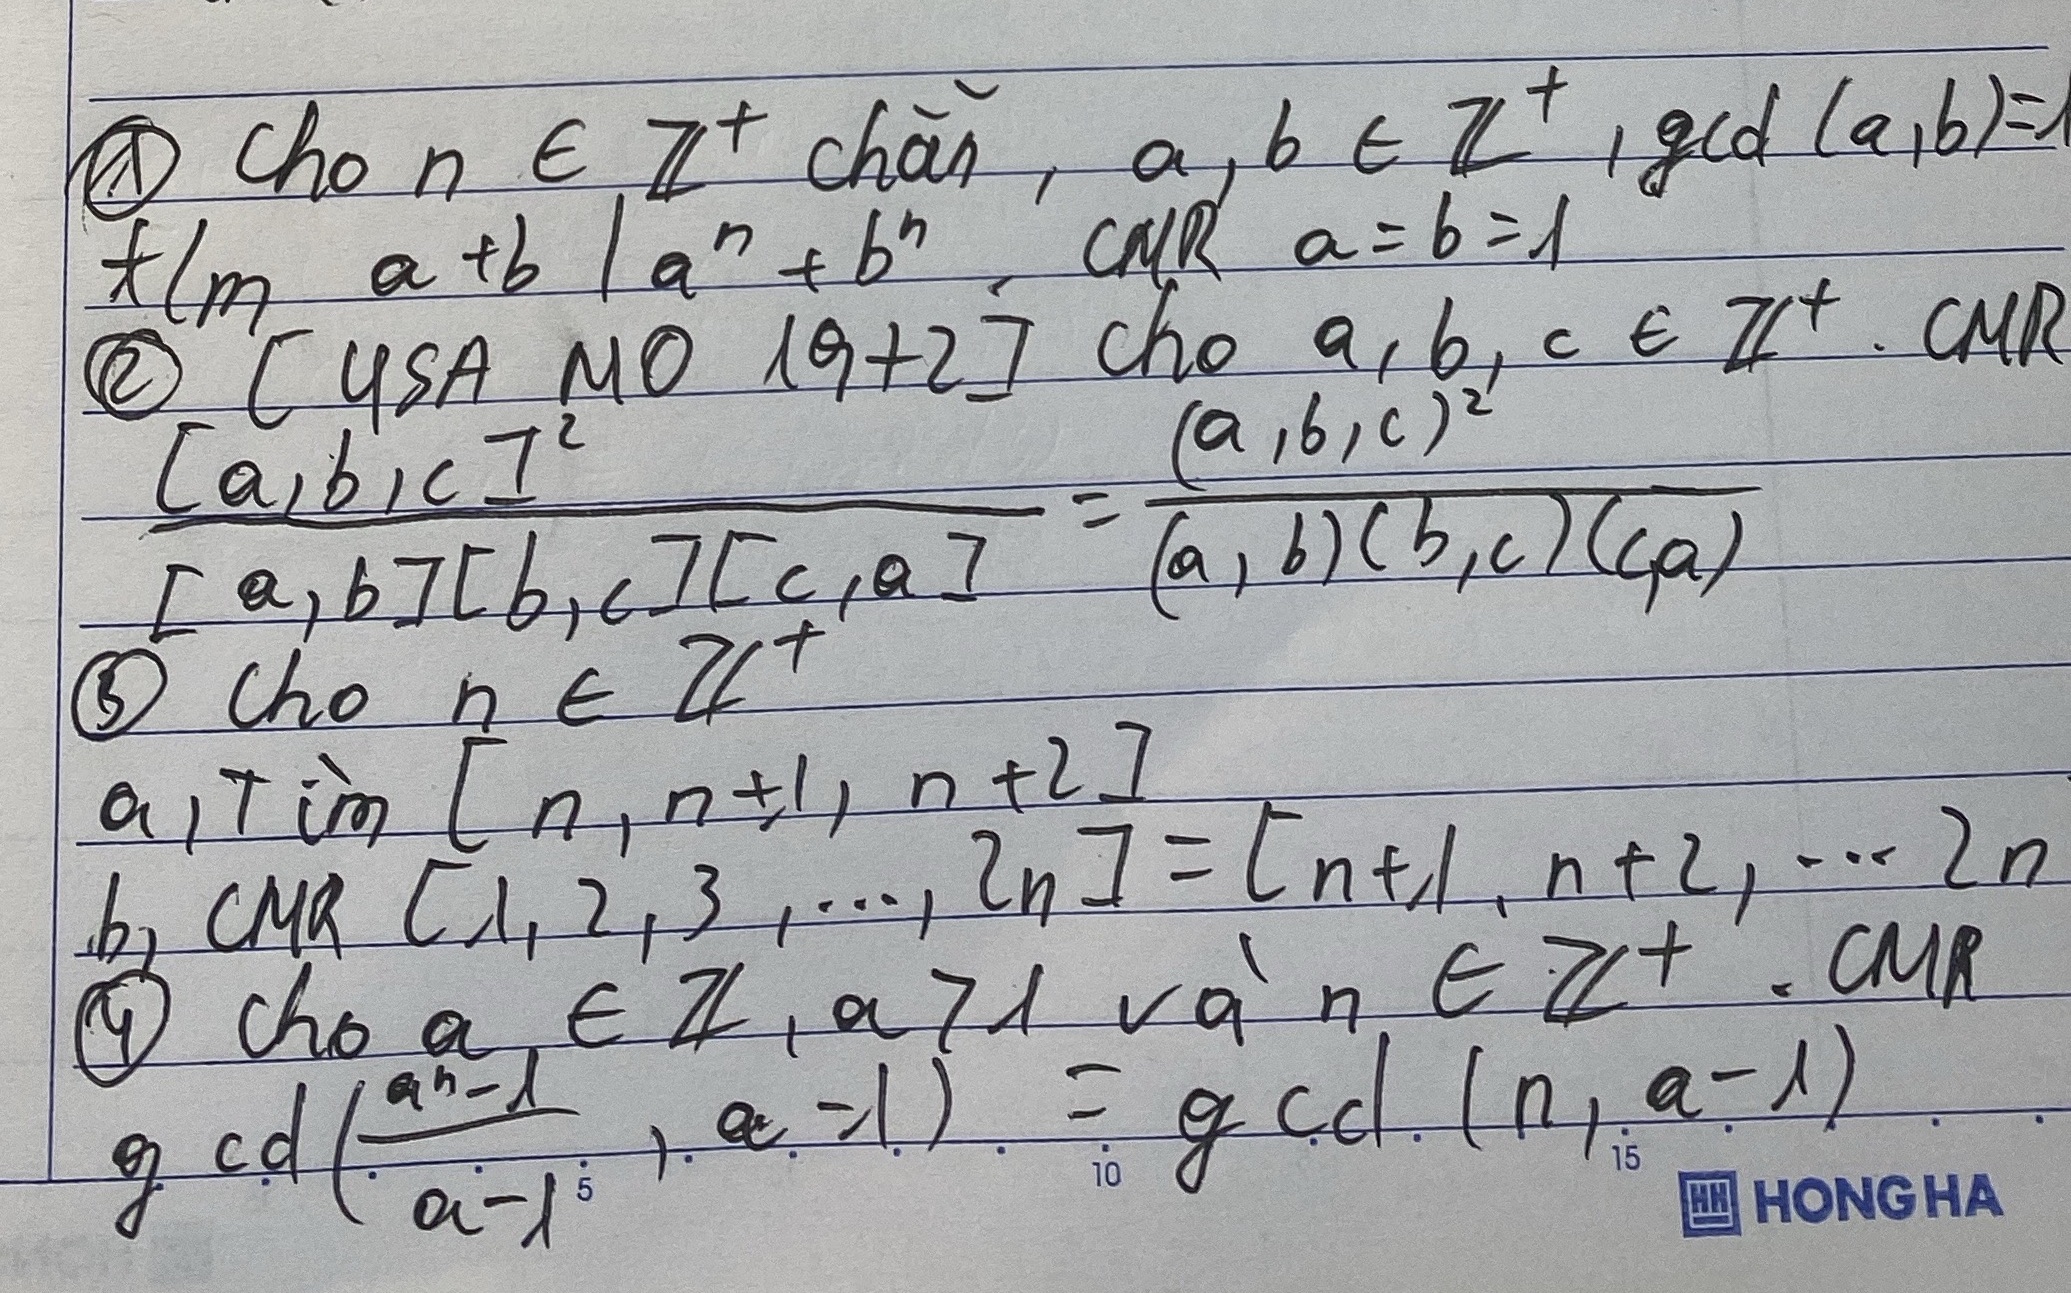 ① Cho n ∈ ℤ⁺ chẵn, a, b ∈ ℤ⁺, gcd (a,b)=1
t/m a+b | aⁿ + bⁿ. CMR a=b=1
② [USA MO 19+2] Cho a, b, c ∈ ℤ⁺. CMR
[a,b,c]² / [a,b][b,c][c,a] = (a,b,c)² / (a,b)(b,c)(c,a)
③ Cho n ∈ ℤ⁺
a, Tìm [n, n+1, n+2]
b, CMR [1, 2, 3, ..., 2n] = [n+1, n+2, ... 2n
④ Cho a ∈ ℤ, a>1 và n ∈ ℤ⁺. CMR
gcd(aⁿ-1 / a-1, a-1) = gcd (n, a-1)
5 10 15
HH HONG HA